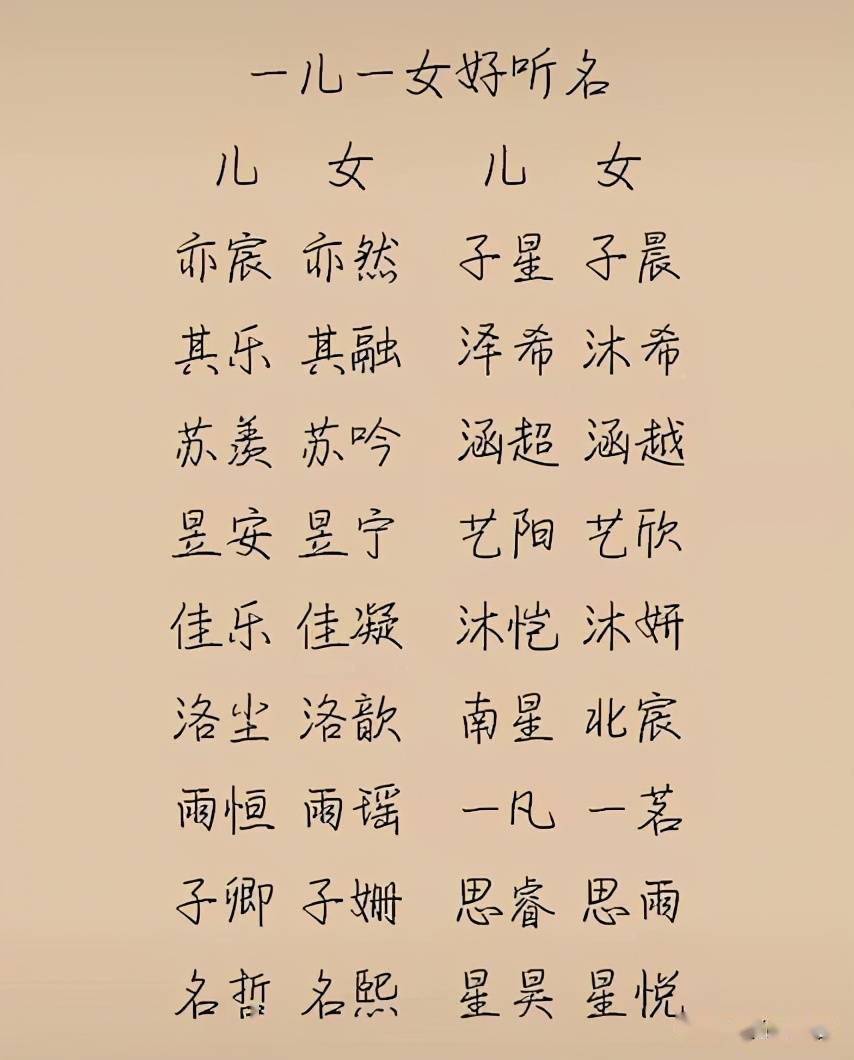 一儿一女好听名
儿 女 儿 女
亦宸 亦然 子星 子晨
其乐 其融 泽希 沐希
苏羡 苏吟 涵超 涵越
昱安 昱宁 艺阳 艺欣
佳乐 佳凝 沐恺 沐妍
洛尘 洛歆 南星 北宸
雨恒 雨瑶 一凡 一茗
子卿 子姗 思睿 思雨
名哲 名熙 星昊 星悦